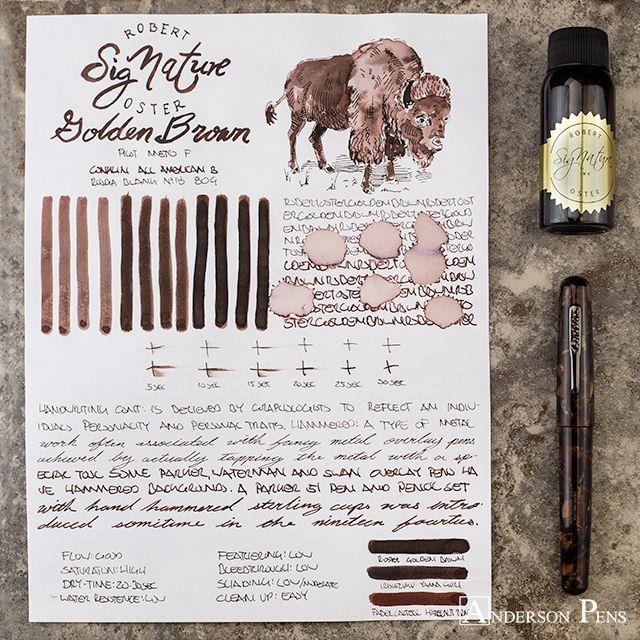 ROBERT
SigNature
OSTER
Golden Brown
PILOT METRO F
CONKLIN ALL AMERICAN B
RHODIA BLANK Nº18 80G
5 SEC 10 SEC 15 SEC 20 SEC 25 SEC 30 SEC
HANDWRITING CONT: IS BELIEVED BY GRAPHOLOGISTS TO REFLECT AN INDIV-
IDUALS PERSONALITY AND PERSONAL TRAITS. HAMMERED: A TYPE OF METAL
work often associated with fancy metal overlay pens
achieved by actually tapping the metal with a sp-
ECIAL TOOL SOME PARKER, WATERMAN AND SWAN OVERLAY PENS HA
VE HAMMERED BACKGROUNDS. A PARKER 51 PEN AND PENCIL SET
with hand hammered sterling caps was intro
duced sometime in the nineteen fourties.
FLOW: GOOD
SATURATION: HIGH
DRY-TIME: 20-30SEC
WATER RESISTENCE: LOW
FEATHERING: LOW
BLEEDTHROUGH: LOW
SHADING: LOW/MODERATE
CLEAN UP: EASY
ROSTER GOLDEN BROWN
IROSHIZUKU YAMA GURI
FABER CASTELL HAZELNUT BRN
ROBERT
SigNature
INK
OSTER
CONKLIN
ANDERSON PENS